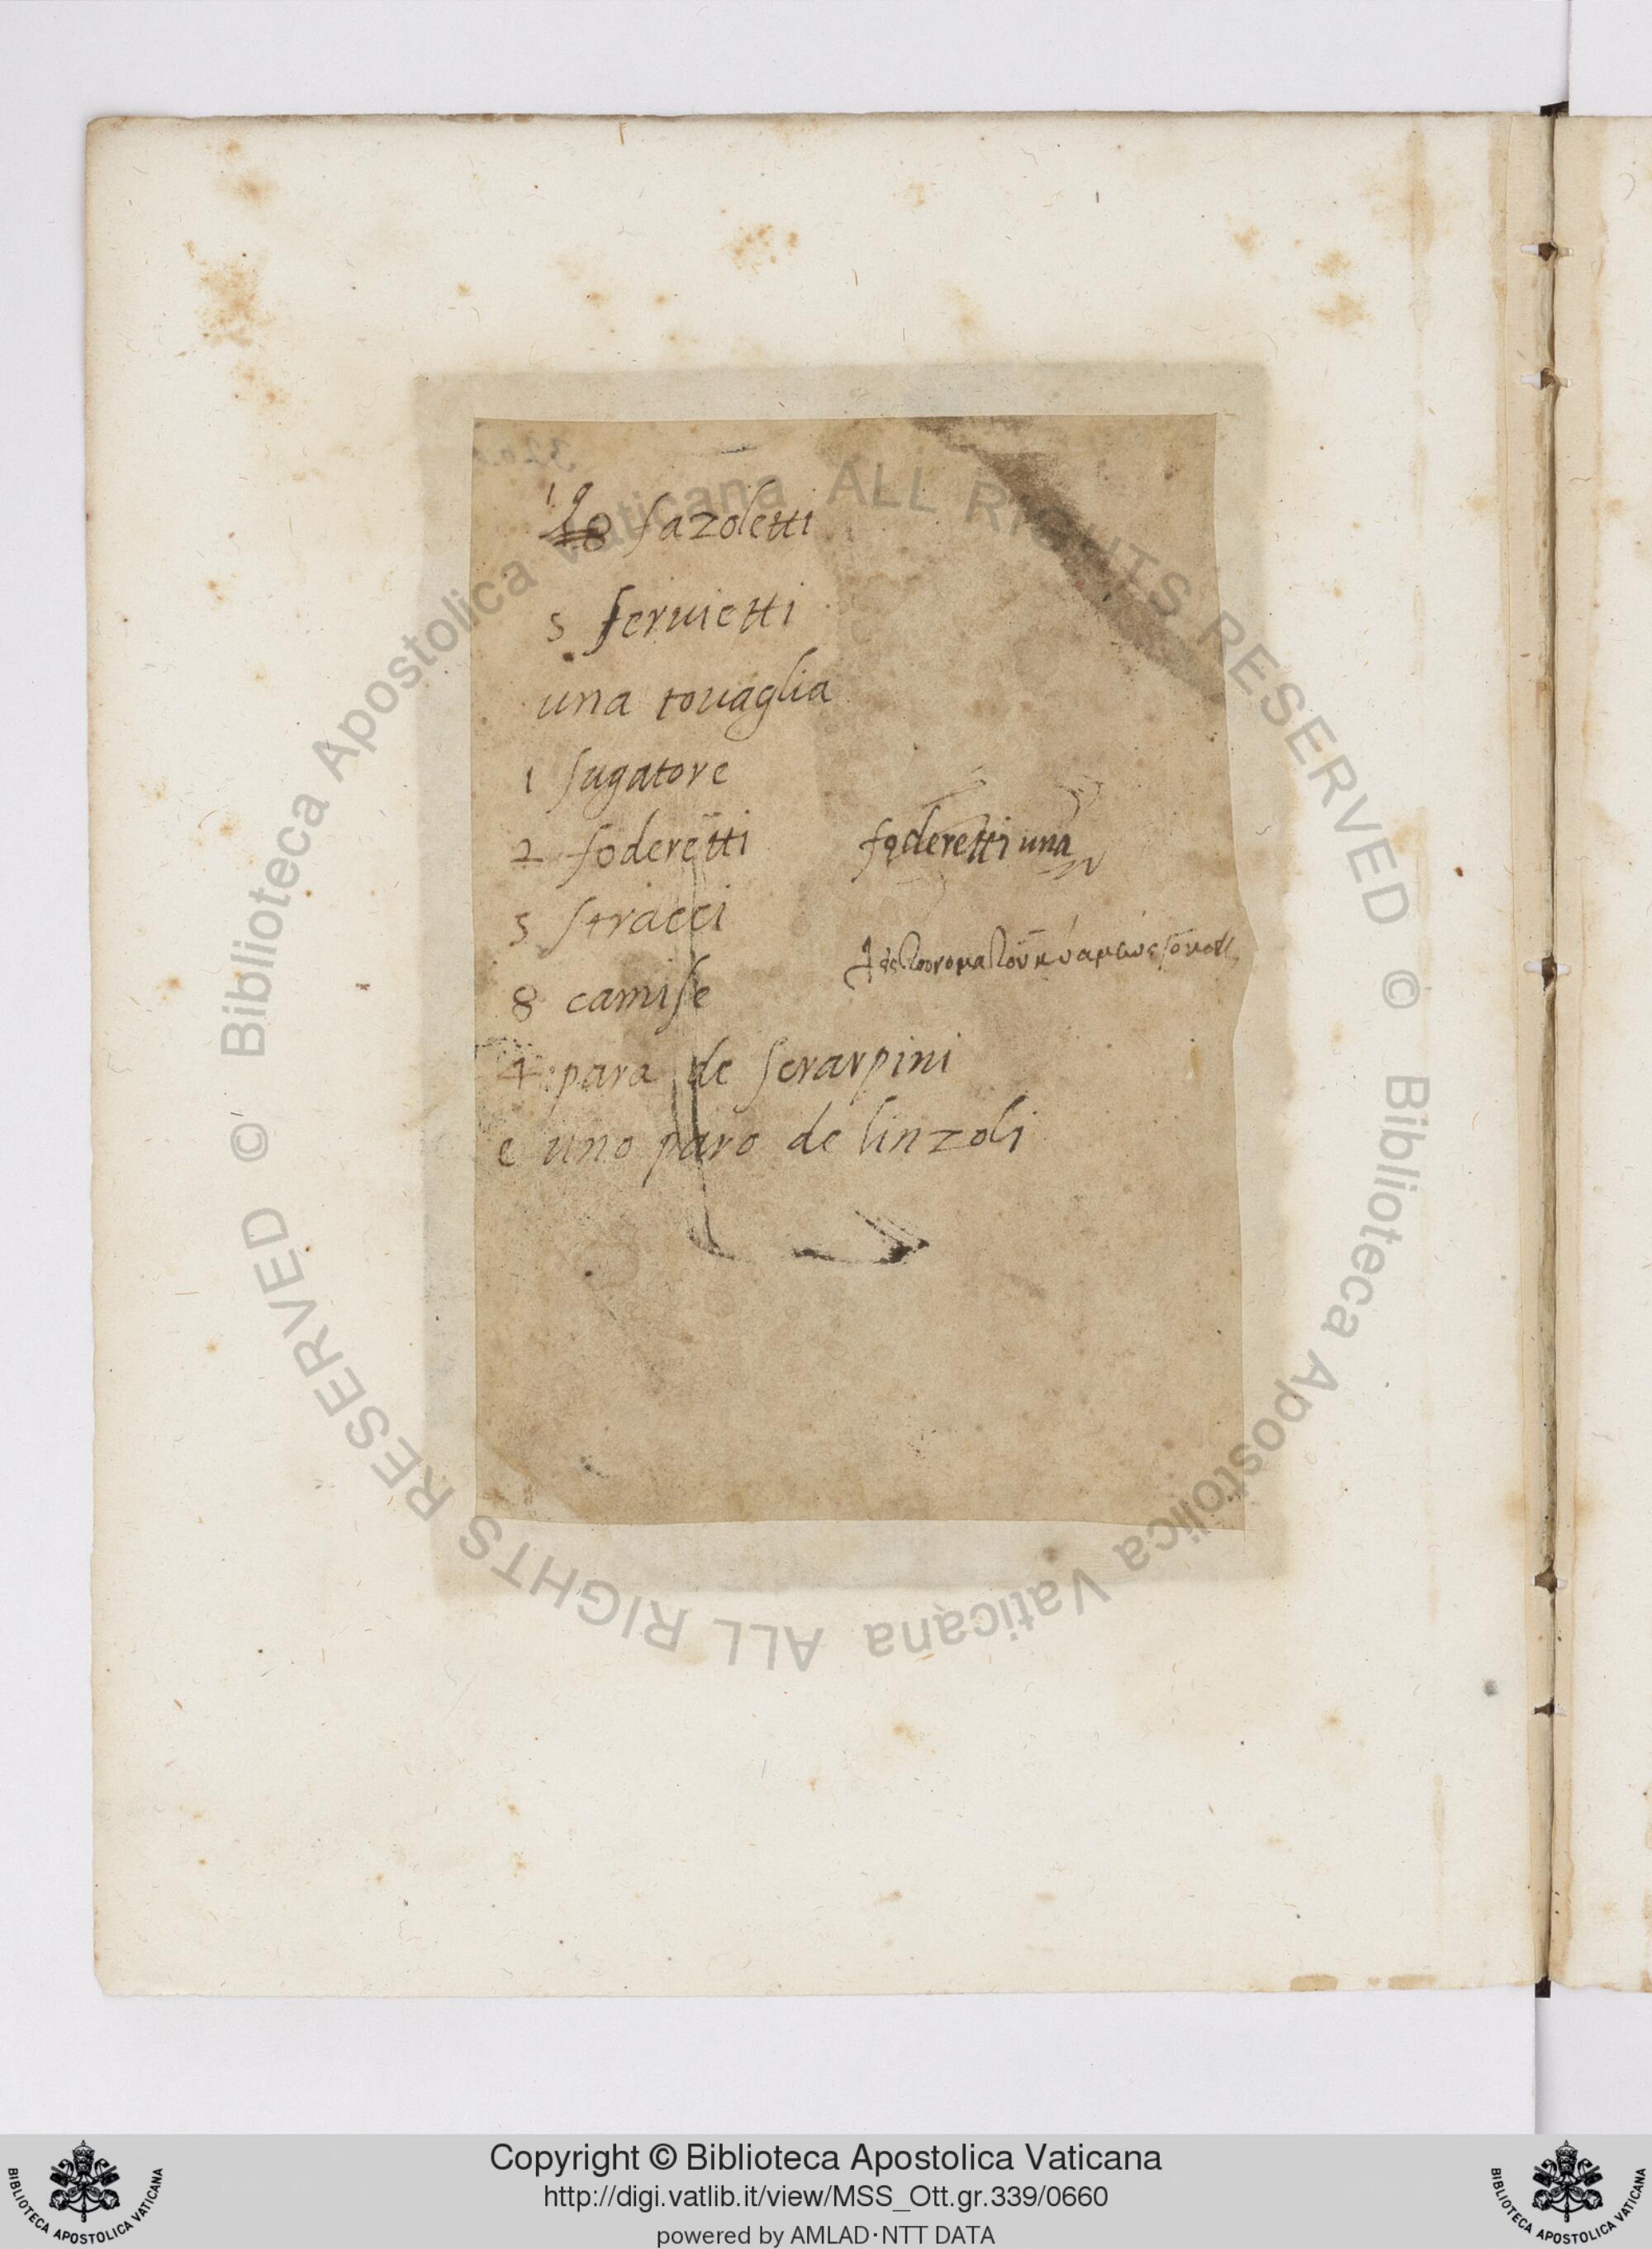 18 fazoletti
5 seruietti
una touaglia
1 sugatore
2 foderetti
foderetti una
5 stracci
8 camise
4 para de scrarpini
e uno paro de linzoli
Copyright © Biblioteca Apostolica Vaticana
http://digi.vatlib.it/view/MSS_Ott.gr.339/0660
powered by AMLAD·NTT DATA
BIBLIOTECA APOSTOLICA VATICANA
BIBLIOTECA APOSTOLICA VATICANA
© Biblioteca Apostolica Vaticana ALL RIGHTS RESERVED
© Biblioteca Apostolica Vaticana ALL RIGHTS RESERVED